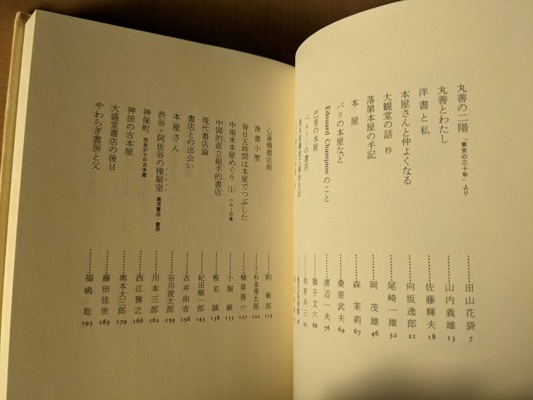 丸善の二階 「東京の三十年」より 田山花袋 7
丸善とわたし 山内義雄 13
洋書と私 佐藤輝夫 18
本屋さんと仲よくなる 向坂逸郎 21
大観堂の話 抄 尾崎一雄 32
落第本屋の手記 岡茂雄 46
本屋 森茉莉 67
パリの本屋など 桑原武夫 69
Edouard Championのこと 渡辺一夫 76
巴里の本屋 獅子文六 88
ベルリンの書店
心斎橋書店街 駒敏郎 115
漁書小歴 杉本秀太郎 122
毎日五時間は本屋でつぶした 植草甚一 127
中南米本屋めぐり(1) ペルーの巻 小堀巌 133
中国的直立組手的書店 椎名誠 138
現代書店論 紀田順一郎 143
書店との出会い 古井由吉 151
本屋さん 谷川俊太郎 159
渋谷・阿佐谷の操縦室 川本三郎 162
神保町 西江雅之 166
神田の古本屋 奥本大三郎 179
大盛堂書店の後日 藤田佳世 185
やわらぎ書房と父 福嶋聡 193